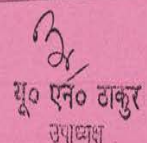 यू० एन० ठाकुर
उपाध्यक्ष